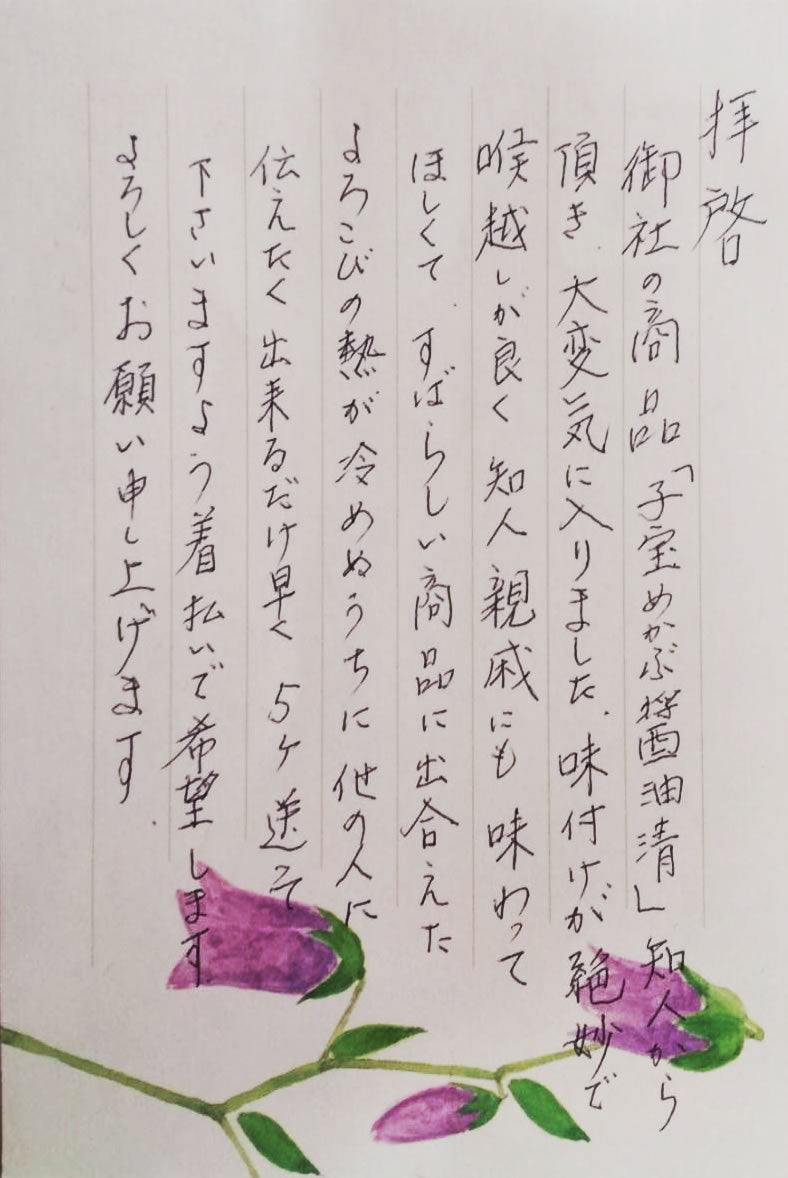 拝啓
御社の商品「子宝めかぶ醤油清」知人から
頂き、大変気に入りました、味付けが絶妙で
喉越しが良く知人親戚にも味わって
ほしくて、すばらしい商品に出合えた
よろこびの熱が冷めぬうちに他の人に
伝えたく出来るだけ早く5ケ送って
下さいますよう着払いで希望します
よろしくお願い申し上げます.